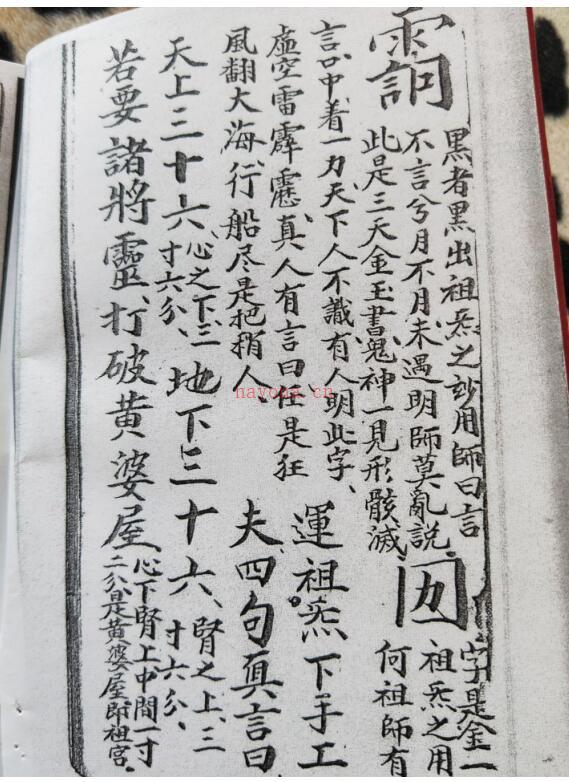 黑者黑出祖炁之妙用師曰言
不言兮月不月未遇明師莫亂說
此是三天金玉書鬼神一見形骸滅
字是金一
祖炁之用
何祖師有
言口中着一力天下人不識有人明此字、
虛空雷霹靂真人有言曰任是狂
風翻大海行船尽是把梢人、
運祖炁下手工
夫四句真言曰
天上三十六、心之下三寸六分、地下三十六、腎之上、三寸六分、
若要諸將靈、打破黃婆屋、心下腎上中間一寸二分是黃婆屋即祖宮、
nayona.cn